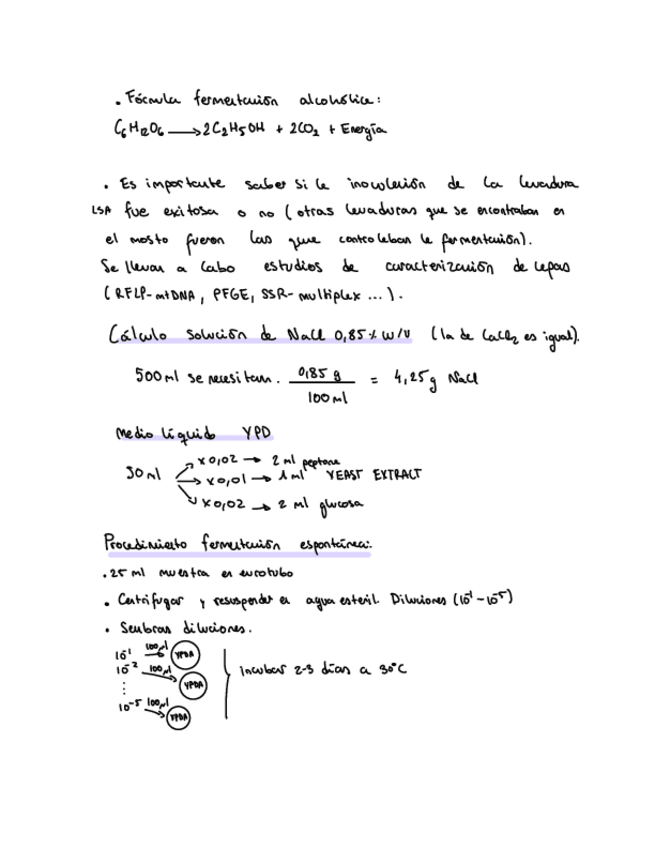 • Fórmula fermentación alcohólica:
C6H12O6 → 2C2H5OH + 2CO2 + Energía
• Es importante saber si la inoculación de la levadura
LSA fue exitosa o no (otras levaduras que se encontraban en
el mosto fueron las que controlaban la fermentación).
Se llevan a cabo estudios de caracterización de cepas
(RFLP-mtDNA, PFGE, SSR-multiplex ...).
Cálculo solución de NaCl 0,85% w/v (la de CaCl2 es igual).
500ml se necesitan. 0,85 g / 100 ml = 4,25 g NaCl
Medio líquido YPD
x0,02 → 2 ml peptona
50 ml → x0,01 → 1 ml YEAST EXTRACT
x0,02 → 2 ml glucosa
Procedimiento fermentación espontánea:
• 25 ml muestra en eurotubo
• Centrifugar y resuspender en agua esteril. Diluciones (10-1 - 10-5)
• Sembrar diluciones.
10-1 100µl → YPDA
10-2 100µl → YPDA
incubar 2-3 días a 30°C
⋮
10-5 100µl → YPDA